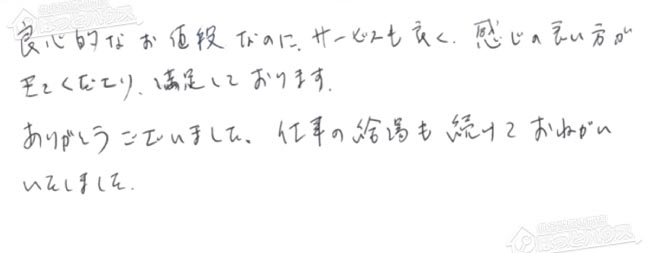 良心的なお値段なのに、サービスも良く、感じの良い方が
来てくださり、満足しております。
ありがとうございました。仕事の給湯も続けておねがい
いたしました。